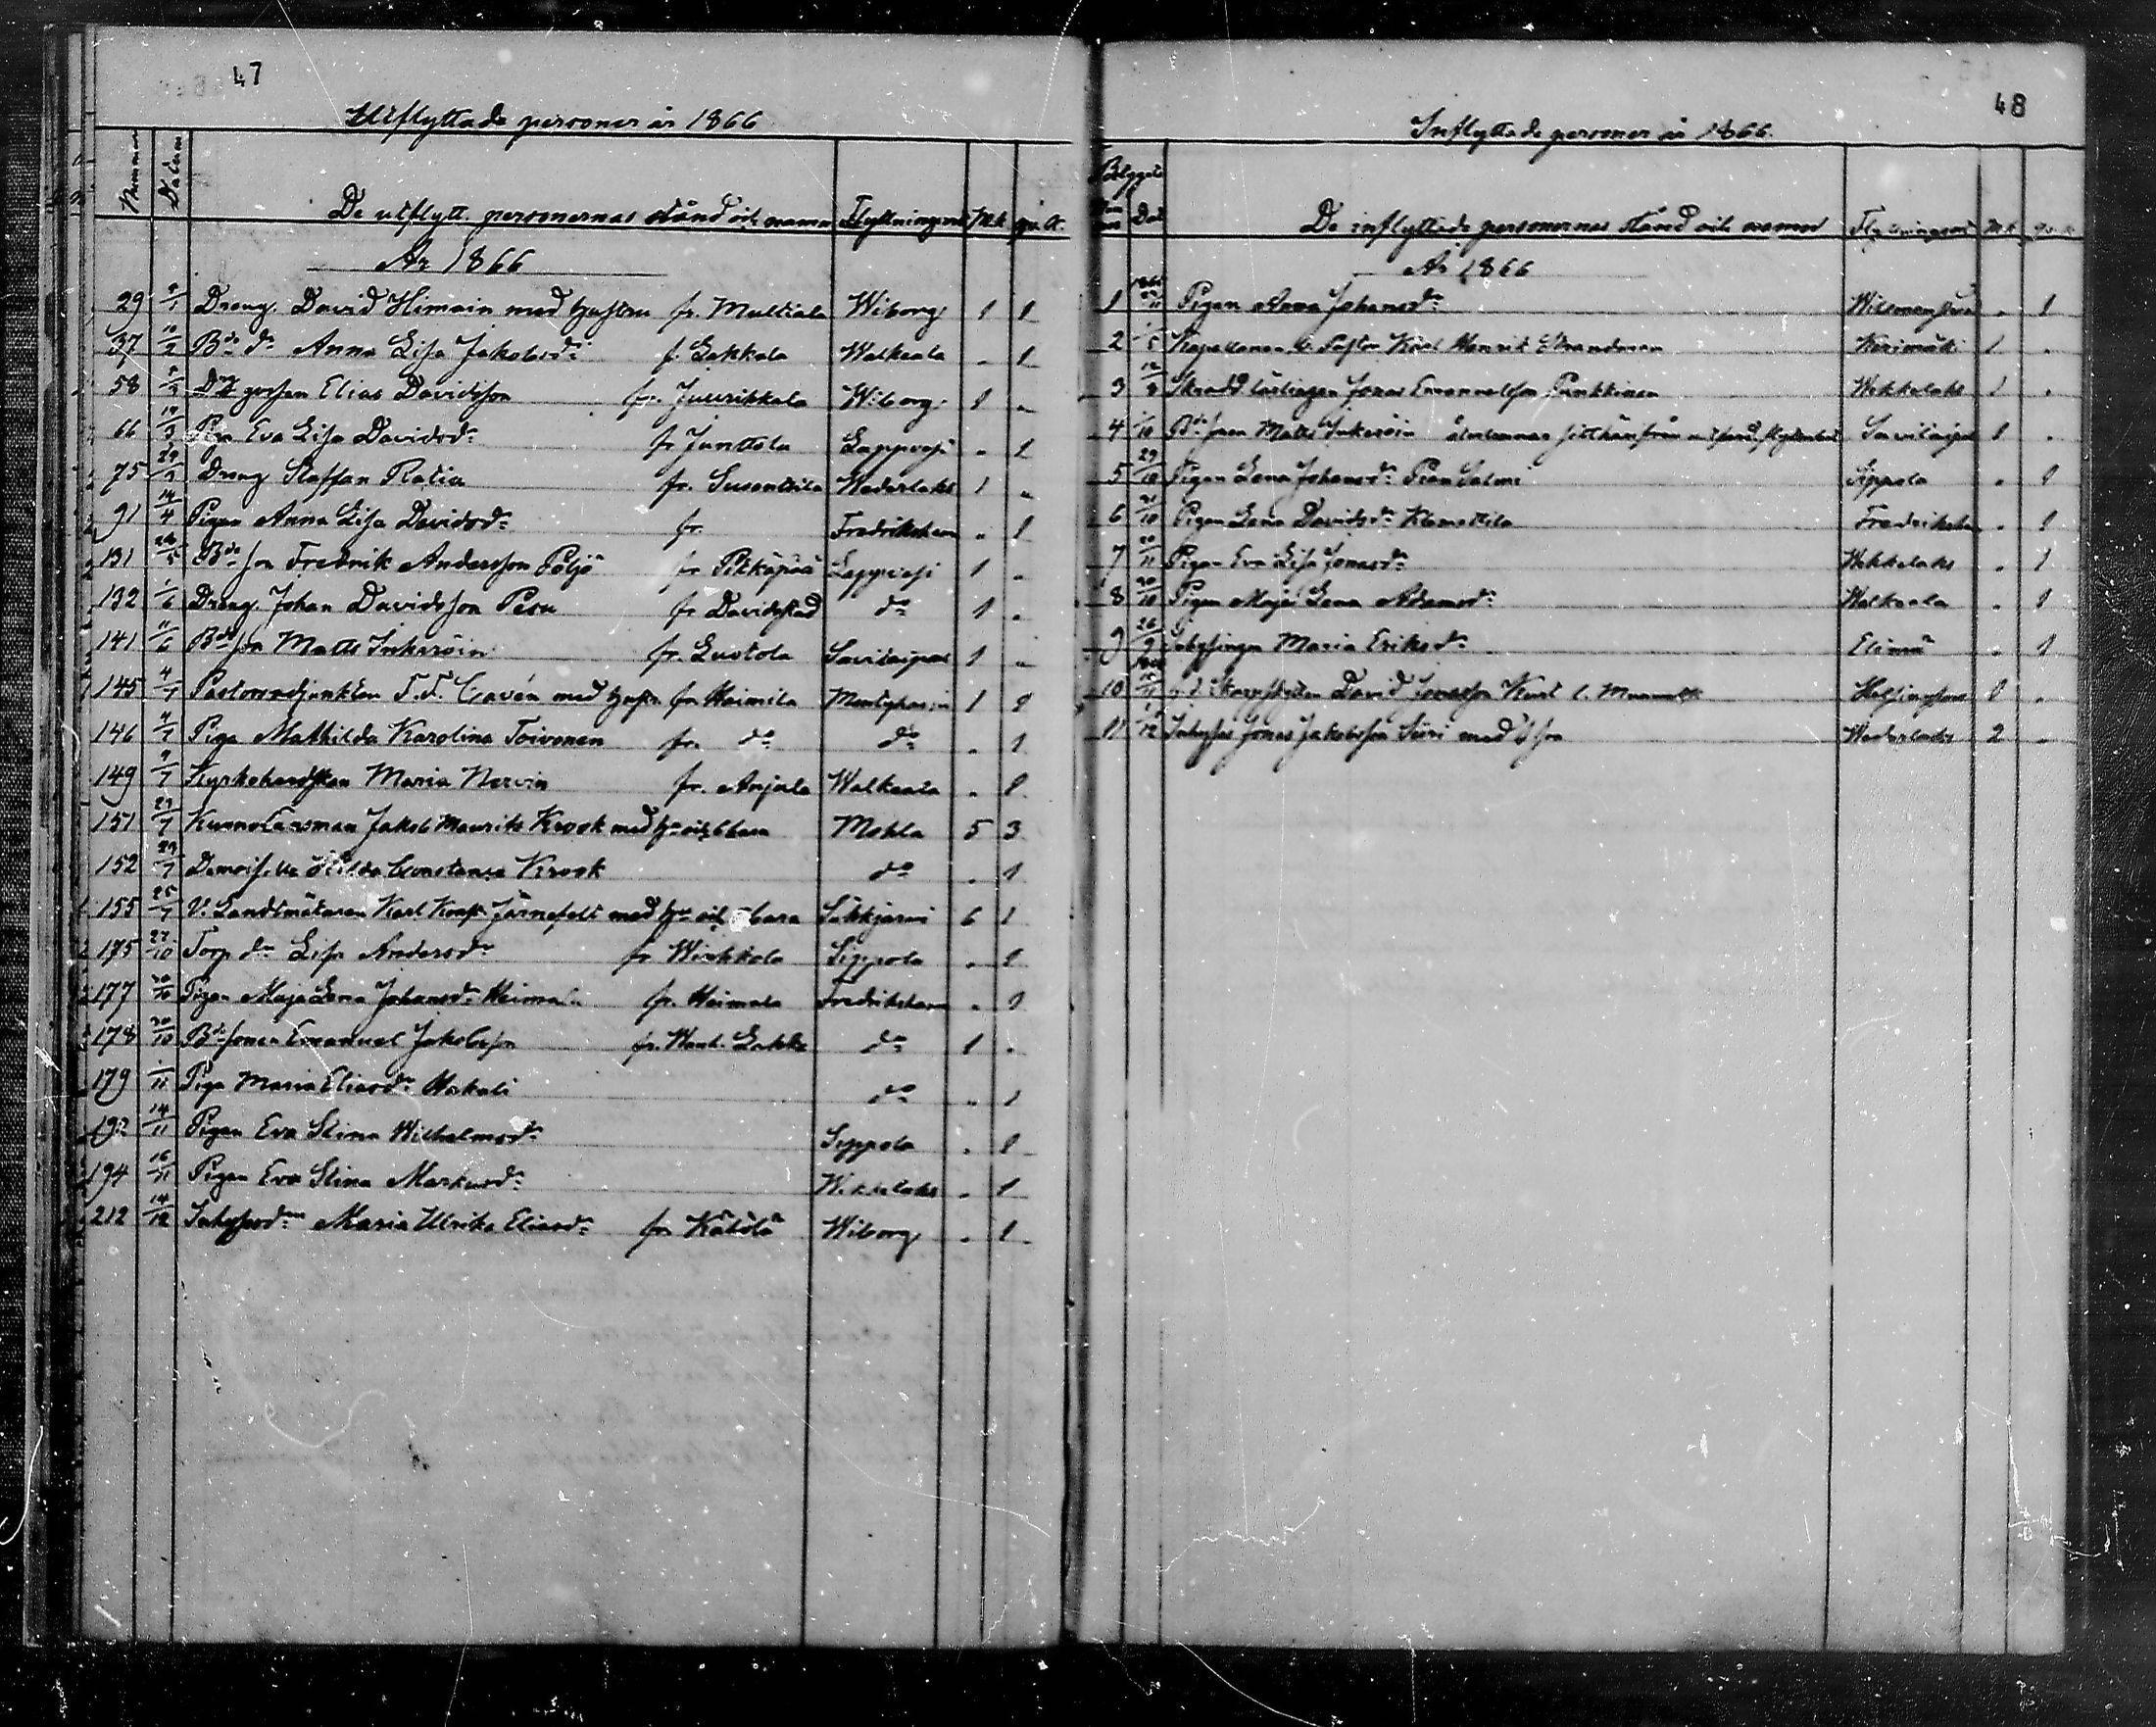 47
Utflyttade personer år 1866
Nummer Datum De utflytt. personernas stånd och namn Flyttningsort Mk qv. k.
År 1866
29 Dräng. David Himain med hustru fr. Multiala Wiborg 1 1
37 10/2 Bde dr Anna Lisa Jakobsdr f. Lakkala Walkeala " 1
58 gossen Elias Davidsson fr. Juurikkala Wiborg 1 "
66 19/3 Eva Lisa Davidsdr fr Junttola Lappvesi " 1
75 Dräng Staffan Ratia fr. Susenttila Wederlaks 1 "
91 14/4 Pigan Anna Lisa Davidsdr fr. Fredrikshamn " 1
131 26/5 Bde son Fredrik Andersson Poljö fr Pitkäpää Lappvesi 1 "
132 1/6 Dräng. Johan Davidsson Pesu fr Davidstad do 1 "
141 11/6 Bde son Matts Inkeröin fr. Luotola Savitaipal 1 "
145 4/7 Pastorsadjunkten F. F. Cavén med hustru fr Haimila Mäntyharju 1 1
146 4/7 Piga Mathilda Karolina Toivonen fr. do do " 1
149 9/7 Kyrkohandskan Maria Nervin fr. Anjala Walkeala " 1
151 23/7 Kronolänsman Jakob Maurits Krook med hu och 6 barn Mohla 5 3
152 23/7 Demoiselle Hilda Constance Krook do " 1
155 25/7 V. Landtmätaren Karl Konst. Järnefelt med hu och barn Säkkjärvi 6 1
175 27/10 Torp dr Lisa Andersdr fr Wirkkola Sippola " 1
177 20/10 Pigan Maja Lena Johansdr Heimala fr. Heimala Fredrikshamn " 1
178 20/10 Bde sonen Emanuel Jakobsson fr. Want. Lakka do 1 "
179 /11 Piga Maria Eliasdr Hakali do " 1
192 14/11 Pigan Eva Stina Wilhelmsdr Sippola " 1
194 16/11 Pigan Eva Stina Markusdr Wekkelaks " 1
212 14/12 Inhysesdr Maria Ulrika Eliasdr fr. Kätölä Wiborg " 1
48
Inflyttade personer år 1866.
Betyget
Dat De inflyttade personernas stånd och namn Flyttningsort Mk qv. k.
År 1866
1 Pigan Anna Johansdr Willmanstrand " 1
2 Kapellanen v. Pastor Karl Henrik Strandman Kerimäki 1 "
3 Skräddlärlingen Jonas Emanuelsson Punkkinen Wekkelaks 1 "
4 /10 Bde sonen Matts Inkeröin återlemnar sitt härifrån utfärd. flyttbetyg Savitaipal 1 "
5 29/10 Pigan Lena Johansdr Pien Salmi Sippola " 1
6 31/10 Pigan Lena Davidsdr Klemettila Fredrikshamn " 1
7 20/11 Pigan Eva Lisa Jonasdr Wekkelaks " 1
8 20/10 Pigan Maja Lena Adamsdr Walkeala " 1
9 26/9 Inhysingen Maria Eriksdr Elimä " 1
10 v. d. Skarpskytten David Jonasson Helsingfors 1 "
11 /12 Inhyses Jonas Jakobsson Siiri med 1 son Wederlaks 2 "